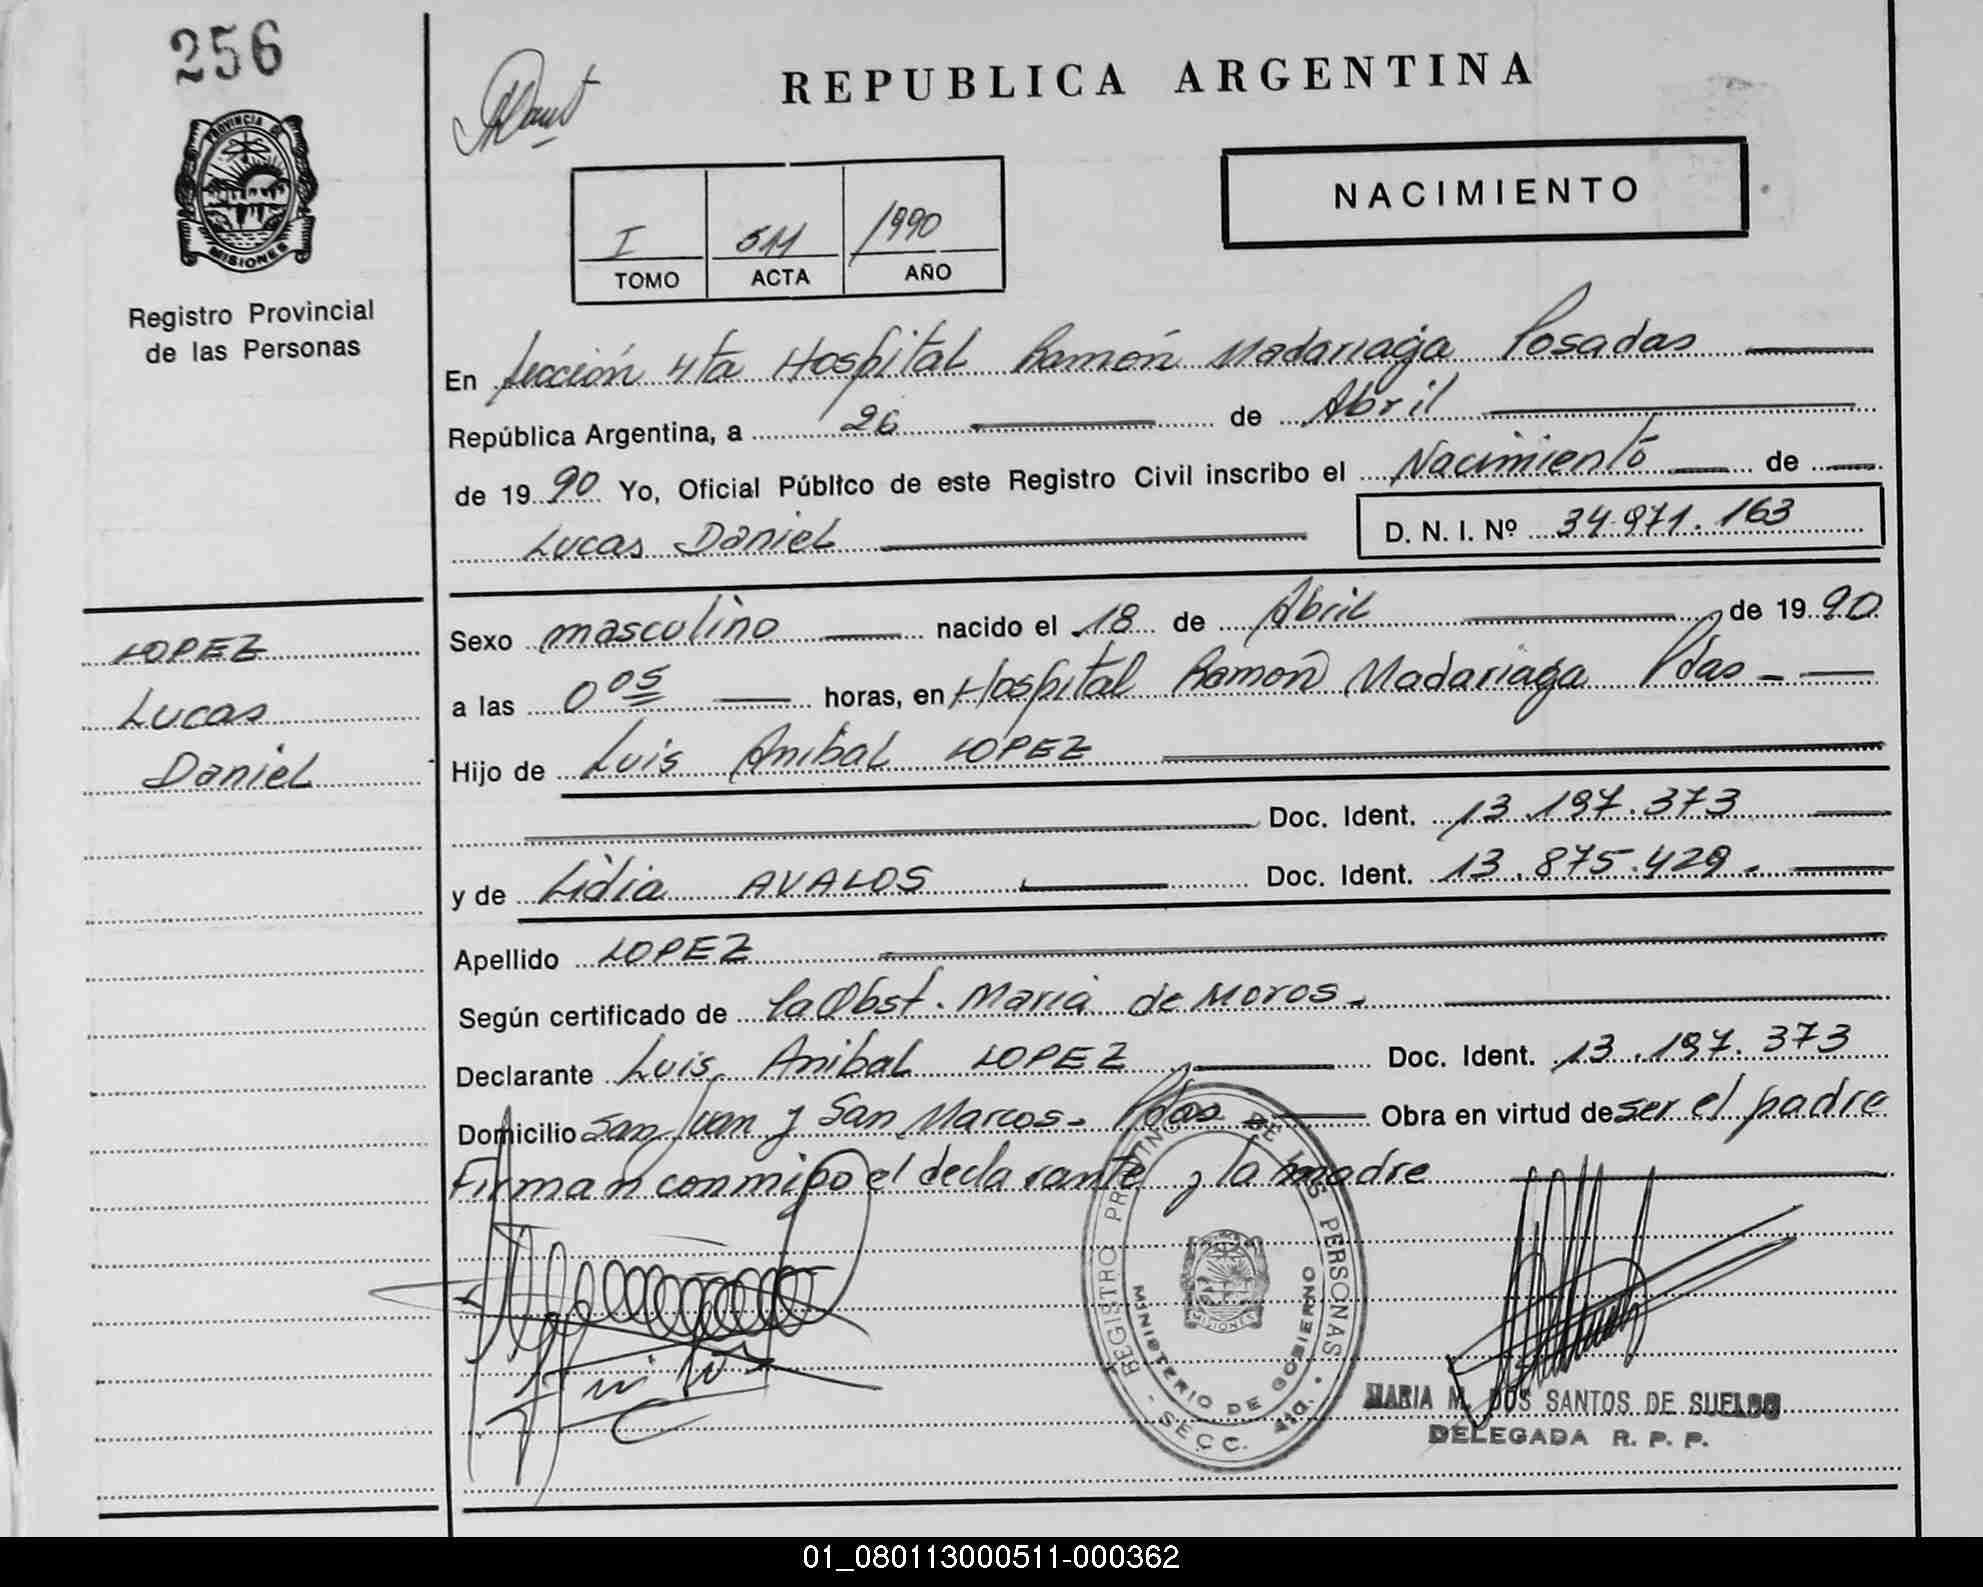 256
REPUBLICA ARGENTINA
PROVINCIA DE
MISIONES
NACIMIENTO
I 511 1990
TOMO ACTA AÑO
Registro Provincial
de las Personas
En Sección 4ta Hospital Ramón Madariaga Posadas
República Argentina, a 26 de Abril
de 1990 Yo, Oficial Público de este Registro Civil inscribo el Nacimiento de
Lucas Daniel D. N. I. Nº 34.971.163
LOPEZ
Lucas
Daniel
Sexo masculino nacido el 18 de Abril de 1990
a las 0 05 horas, en Hospital Ramón Madariaga Pdas
Hijo de Luis Anibal LOPEZ
Doc. Ident. 13.197.373
y de Lidia AVALOS Doc. Ident. 13.875.429.
Apellido LOPEZ
Según certificado de la Obst. Maria de Moros.
Declarante Luis Anibal LOPEZ Doc. Ident. 13.197.373
Domicilio San Juan y San Marcos. Pdas Obra en virtud de ser el padre
Firman conmigo el declarante y la madre
REGISTRO PROVINCIAL DE LAS PERSONAS
MINISTERIO DE GOBIERNO
MISIONES
- SECC. 4ta. -
MARIA M. DOS SANTOS DE SUELDO
DELEGADA R. P. P.
01_080113000511-000362